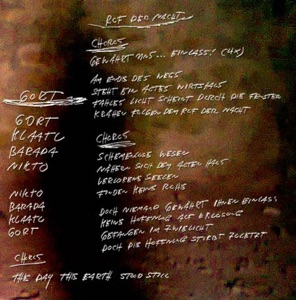 RUF DER NACHT
CHORUS
GEWÄHRT UNS... EINLASS! (4X)
AM ENDE DES WEGS
STEHT EIN ALTES WIRTSHAUS
FAHLES LICHT SCHEINT DURCH DIE FENSTER
KRÄHEN FOLGEN DEM RUF DER NACHT
CHORUS
SCHEMENLOSE WESEN
NÄHERN SICH DEM ALTEN HAUS
VERLORENE SEELEN
FINDEN KEINE RUHE
DOCH NIEMAND GEWÄHRT IHNEN EINLASS
KEINE HOFFNUNG AUF ERLÖSUNG
GEFANGEN IM ZWIELICHT
DOCH DIE HOFFNUNG STIRBT ZULETZT
GORT
GORT
KLAATU
BARADA
NIKTO
NIKTO
BARADA
KLAATU
GORT
CHORUS
THE DAY THIS EARTH STOOD STILL